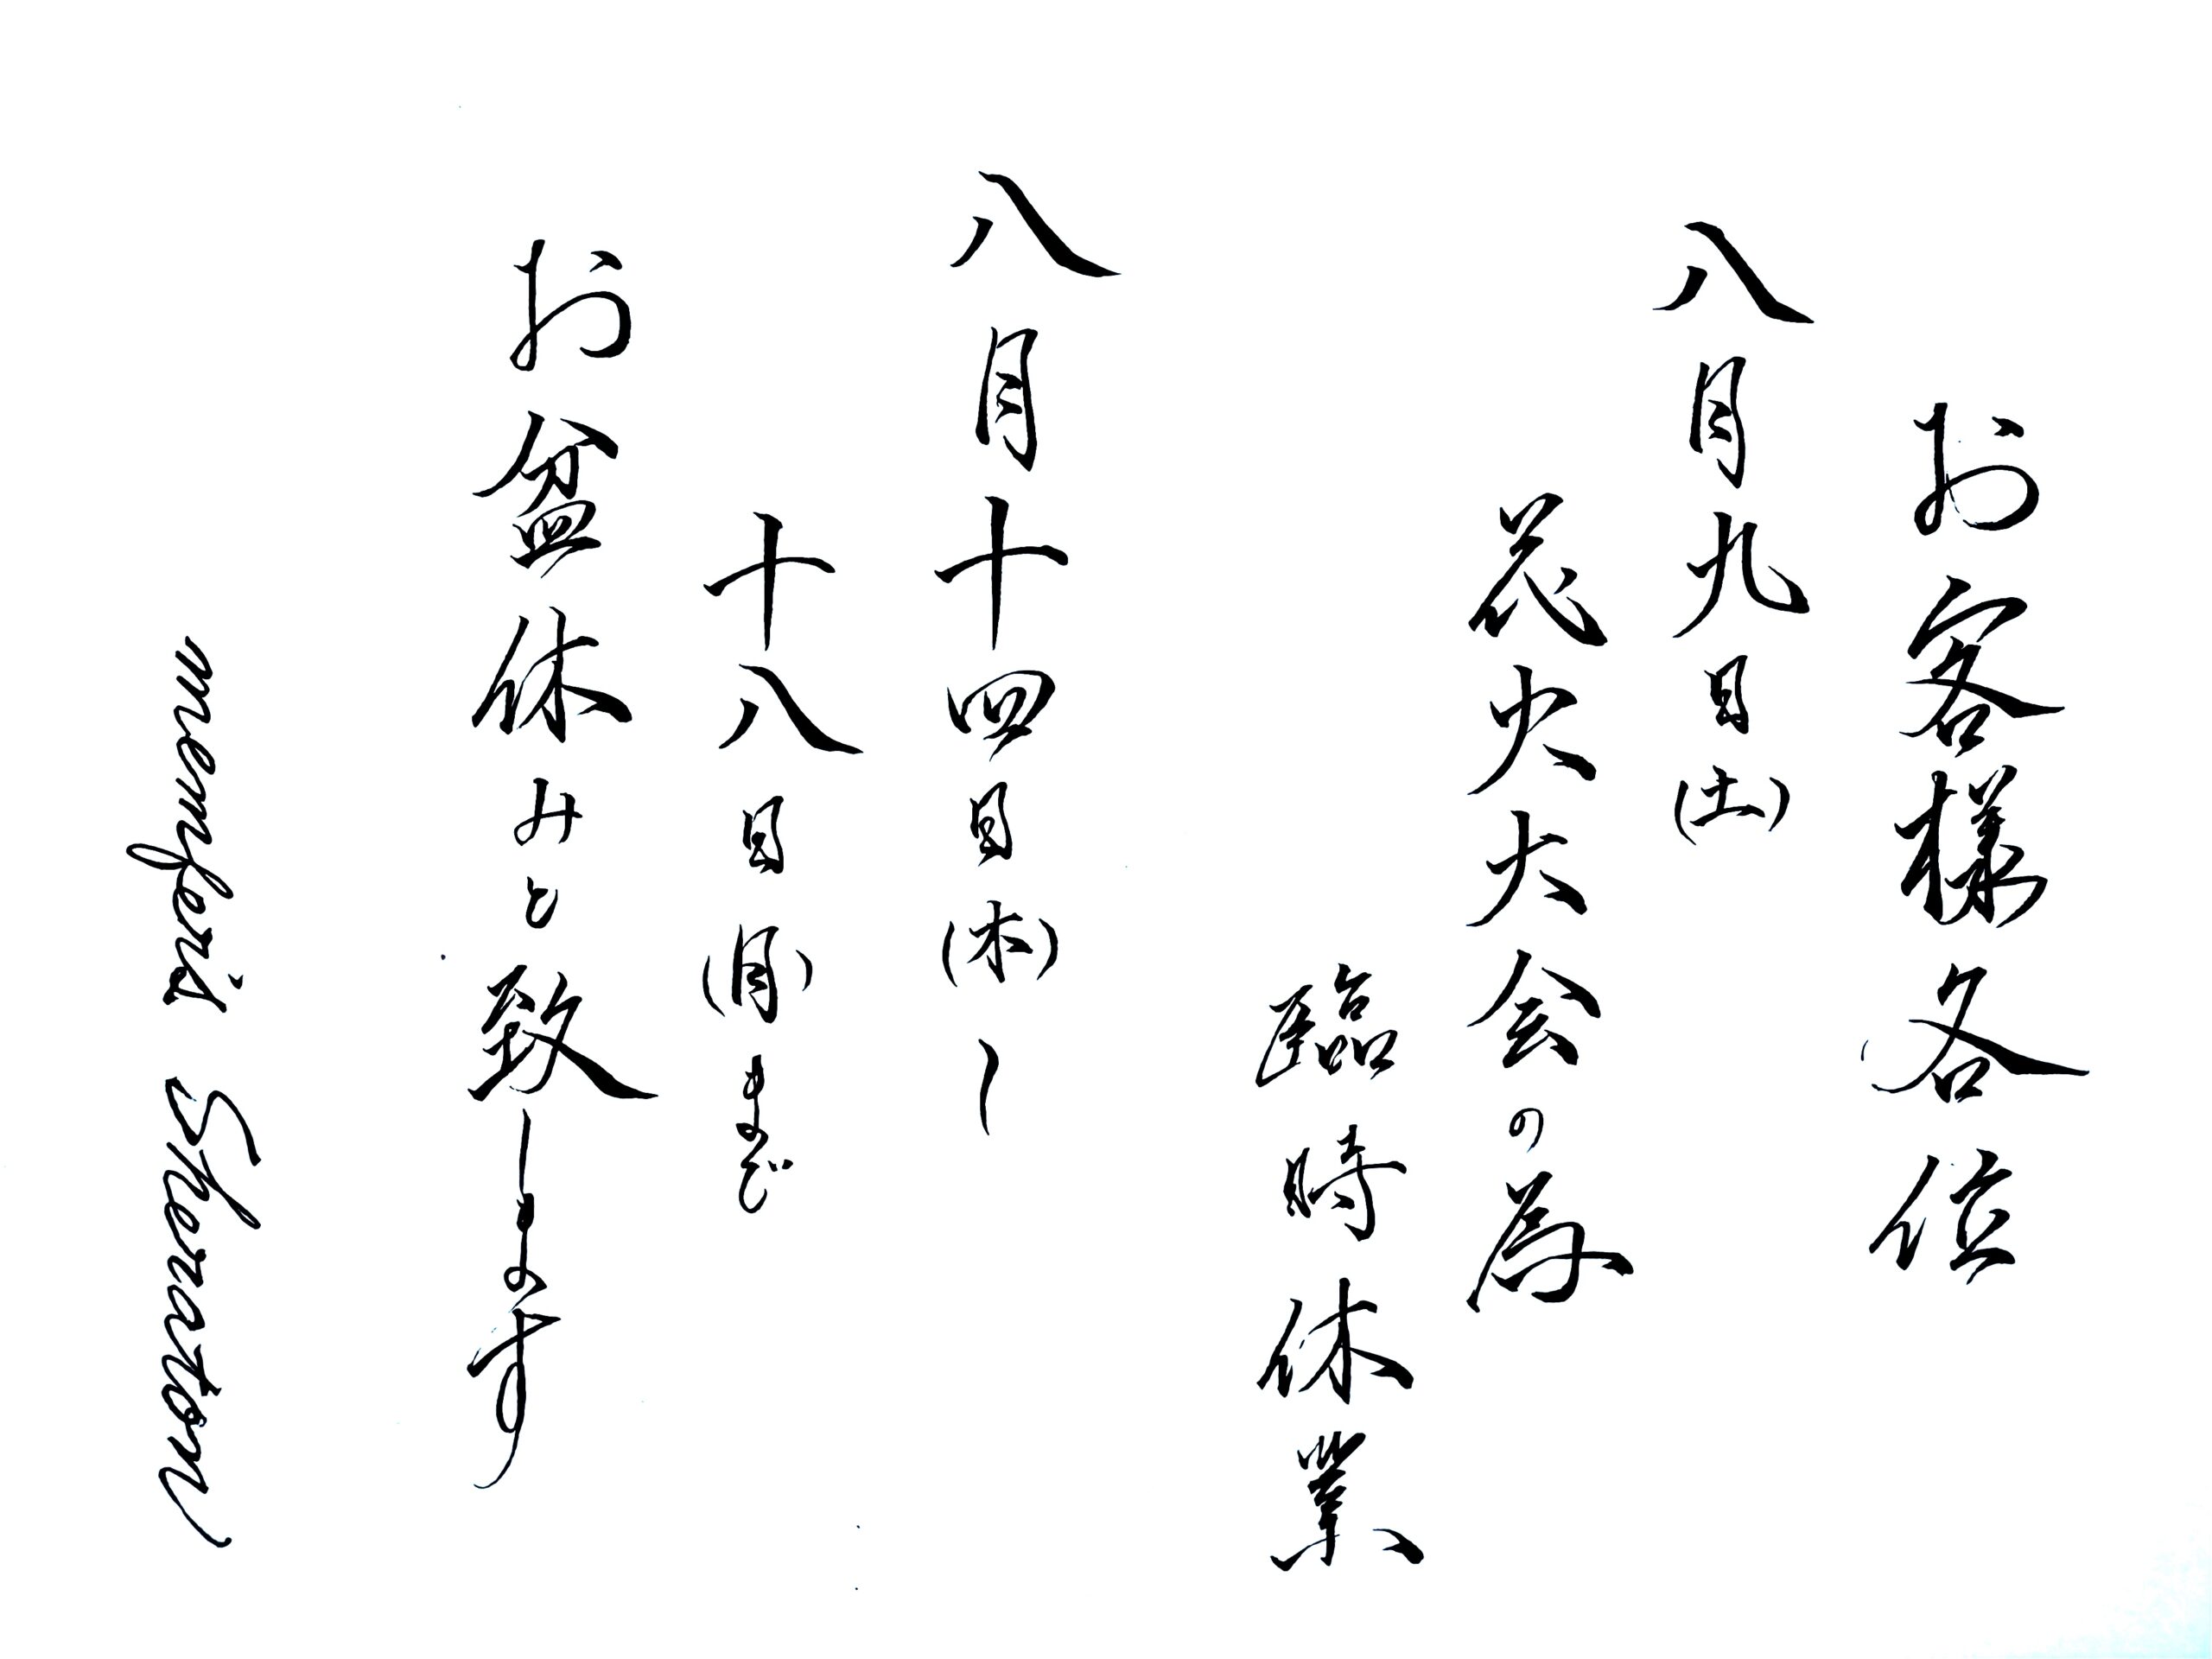 お客様各位
八月九日(土)
花火大会の為
臨時休業
八月十四日(木)〜
十八日(月)まで
お盆休みと致します